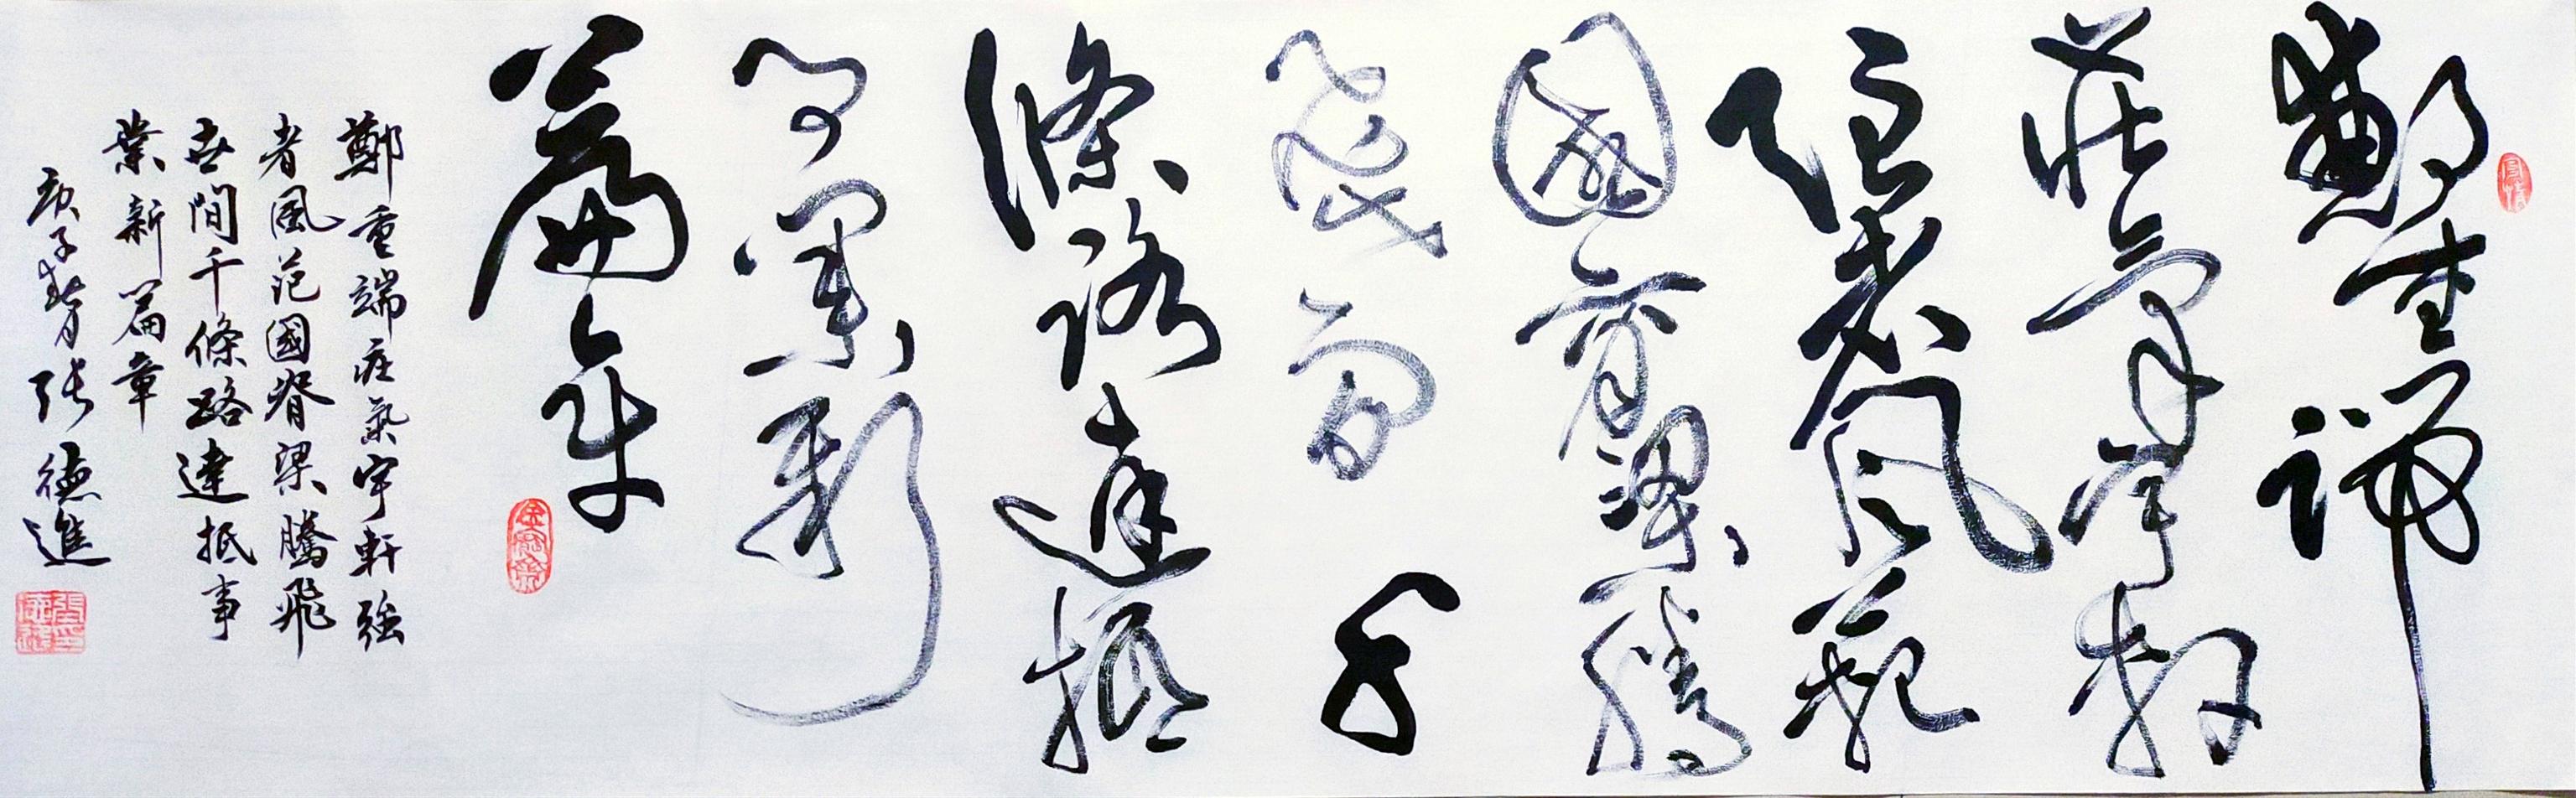 鄭重端
莊氣宇軒
強者風範
國脊梁騰
飛世間千
條路達抵
事業新
篇章
鄭重端庄氣宇軒強
者風范國脊梁騰飛
世間千條路達抵事
業新篇章
庚子春月張德進